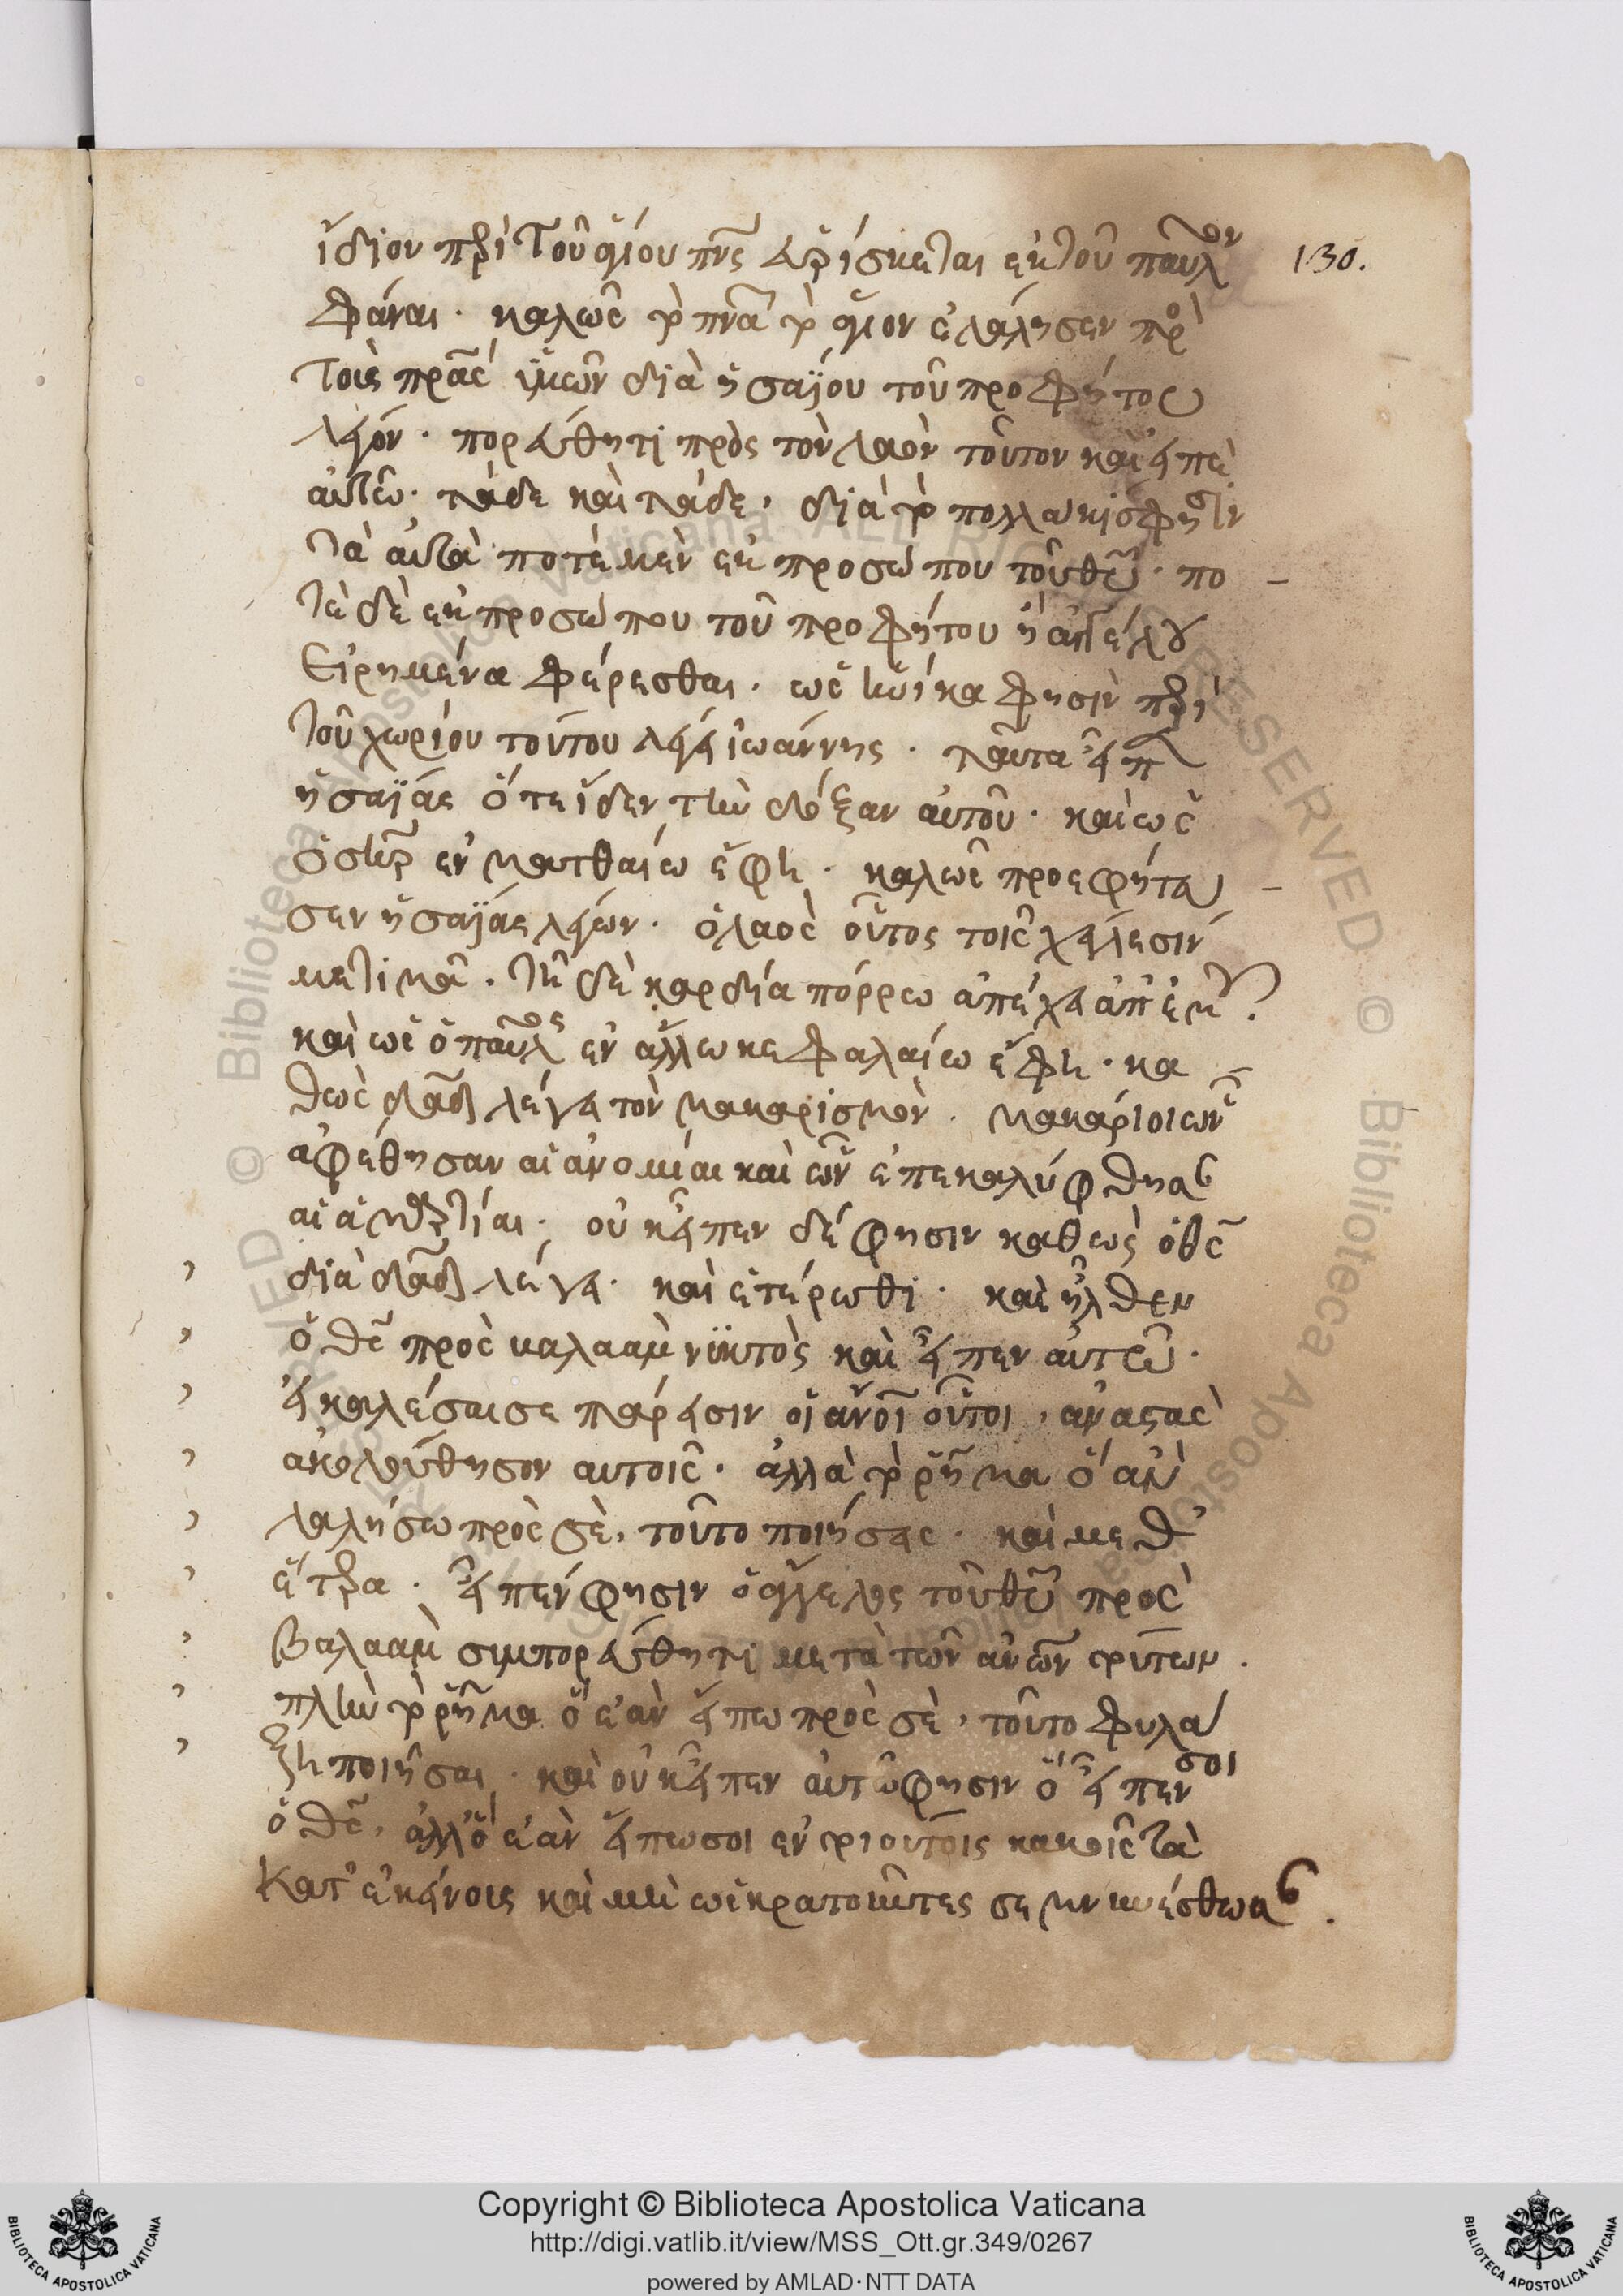 ἴδιον πρὶ τοῦ ἁγίου πνς εὑρίσκεται ἐκ τοῦ παῦλον
130.
φάναι· καλῶς τὸ πνα τὸ ἅγιον ἐλάλησεν πρὸ
τοὺς πρας ὑμῶν διὰ ἡσαΐου τοῦ προφήτου
λέγον· πορεύθητι πρὸς τὸν λαὸν τοῦτον καὶ εἰπὲ
αὐτῶ· τάδε καὶ τάδε, διὰ τὸ πολλάκις φησιν
τὰ αὐτὰ ποτὲ μὲν ἐκ προσώπου τοῦ θυ· πο
τὲ δὲ ἐκ προσώπου τοῦ προφήτου ἢ ἀγγέλου
εἰρημένα φέρεσθαι· ὡς ἡνίκα φησὶν πρὶ
τοῦ χωρίου τούτου λέγει ἰωάννης· ταῦτα εἶπ
ἡσαΐας ὅτε ἴδεν τὴν δόξαν αὐτοῦ· καὶ ὡς
ὁ σηρ ἐν ματθαίω ἔφη· καλῶς προεφήτευ
σεν ἡσαΐας λέγων· ὁ λαὸς οὗτος τοῖς χείλεσίν
με τιμᾶ· τῆ δὲ καρδία πόρρω ἀπέχει ἀπ' ἐμοῦ.
καὶ ὡς ὁ παῦλος ἐν ἄλλω κεφαλαίω ἔφη· κα
θὼς δαδ λέγει τὸν μακαρισμὸν· μακάριοι ὧν
ἀφέθησαν αἱ ἀνομίαι καὶ ὧν ἐπεκαλύφθησ
αἱ ἁμρτίαι· οὐκ εἶπεν δέ φησιν καθὼς ὁ θς
διὰ δαδ λέγει· καὶ ἑτέρωθι· καὶ ἦλθεν
ὁ θς πρὸς βαλαὰμ νϋκτὸς καὶ εἶπεν αὐτῶ·
εἰ καλέσαι σε πάρεισιν οἱ ἄνοι οὗτοι, ἀναστὰς
ἀκολούθησον αὐτοῖς· ἀλλὰ τὸ ῥῆμα ὃ ἂν
λαλήσω πρὸς σὲ, τοῦτο ποιήσεις· καὶ μεθ'
ἕτρα· εἶπέν φησιν ὁ ἄγγελος τοῦ θυ πρὸς
βαλαὰμ συμπορεύθητι μετὰ τῶν ἀνων τούτων.
πλὴν τὸ ῥῆμα ὃ ἐὰν εἴπω πρὸς σὲ, τοῦτο φυλά
ξη ποιῆσαι· καὶ οὐκ εἶπεν αὐτῶ φησιν ὃ εἶπέν σοι
ὁ θς, ἀλλ' ὃ ἐὰν εἴπω σοι ἐν τούτοις κἀκεῖς τὰ
κατ' ἐκείνους καὶ μὴ ὡς κρατοῦντες σεμνυνέσθωσ.
Copyright © Biblioteca Apostolica Vaticana
http://digi.vatlib.it/view/MSS_Ott.gr.349/0267
powered by AMLAD·NTT DATA
BIBLIOTECA APOSTOLICA VATICANA
BIBLIOTECA APOSTOLICA VATICANA